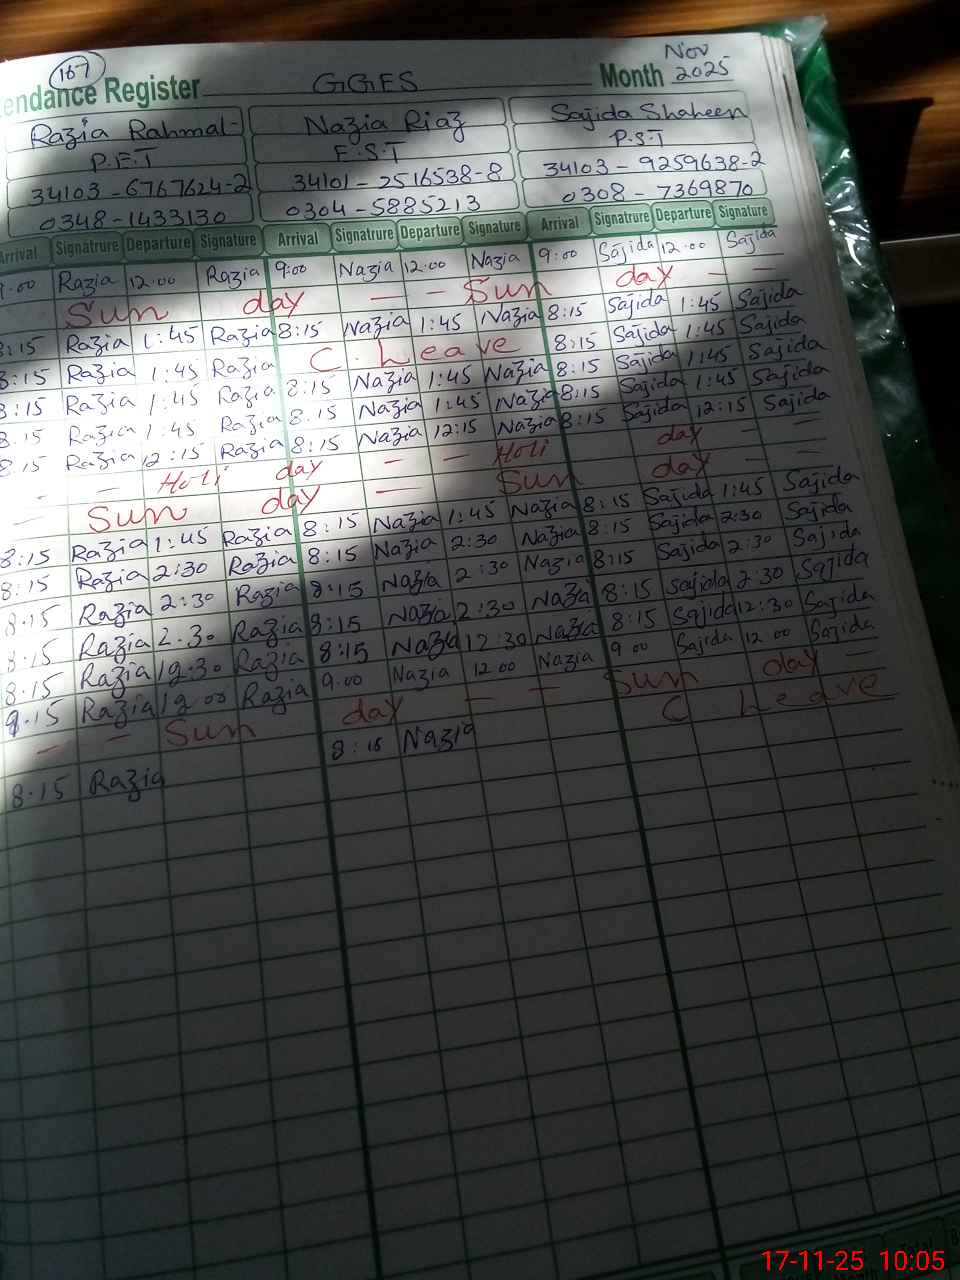 167
endance Register GGES Month Nov 2025
Razia Rahmat Nazia Riaz Sajida Shaheen
P.E.T E.S.T P.S.T
34103-6767624-2 34101-2516538-8 34103-9259638-2
0348-1433130 0304-5885213 0308-7369870
Arrival Signatrure Departure Signature Arrival Signatrure Departure Signature Arrival Signatrure Departure Signature
9.00 Razia 12.00 Razia 9:00 Nazia 12.00 Nazia 9:00 Sajida 12.00 Sajida
Sun day — — Sun day — —
8:15 Razia 1:45 Razia 8:15 Nazia 1:45 Nazia 8:15 Sajida 1:45 Sajida
8:15 Razia 1:45 Razia C. Leave 8:15 Sajida 1:45 Sajida
8:15 Razia 1:45 Razia 8:15 Nazia 1:45 Nazia 8:15 Sajida 1:45 Sajida
8.15 Razia 1:45 Razia 8.15 Nazia 1:45 Nazia 8:15 Sajida 1:45 Sajida
8.15 Razia 12:15 Razia 8:15 Nazia 12:15 Nazia 8:15 Sajida 12:15 Sajida
— — Holi day — — Holi day — —
— Sun day — Sun day — —
8:15 Razia 1:45 Razia 8:15 Nazia 1:45 Nazia 8:15 Sajida 1:45 Sajida
8:15 Razia 2:30 Razia 8:15 Nazia 2:30 Nazia 8:15 Sajida 2:30 Sajida
8.15 Razia 2:30 Razia 8:15 Nazia 2:30 Nazia 8:15 Sajida 2:30 Sajida
8:15 Razia 2.30 Razia 8:15 Nazia 2:30 Nazia 8:15 Sajida 2:30 Sajida
8.15 Razia 12:30 Razia 8:15 Nazia 12:30 Nazia 8:15 Sajida 12:30 Sajida
9.15 Razia 12.00 Razia 9.00 Nazia 12 00 Nazia 9 00 Sajida 12 00 Sajida
— — Sun day — — Sun day —
8.15 Razia 8:15 Nazia C Leave
17-11-25 10:05